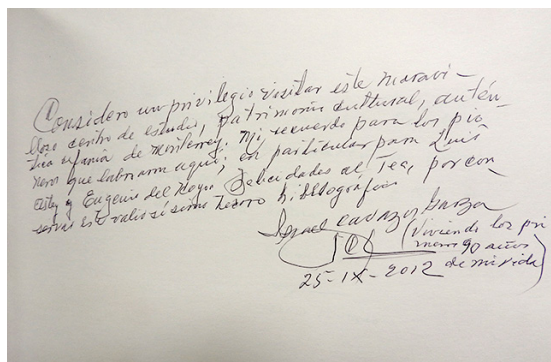 Considero un privilegio visitar este maravi-
lloso centro de estudio, patrimonio cultural, autén-
tica ufanía de Monterrey. Mi recuerdo para los pio-
neros que laboraron aquí; en particular para Luis
Astey y Eugenio del Hoyo. Felicidades al Tec, por con
servar este valiosísimo tesoro bibliográfico
Israel Cavazos Garza
(Viviendo los pri
meros 90 años
25-IX-2012 de mi vida)